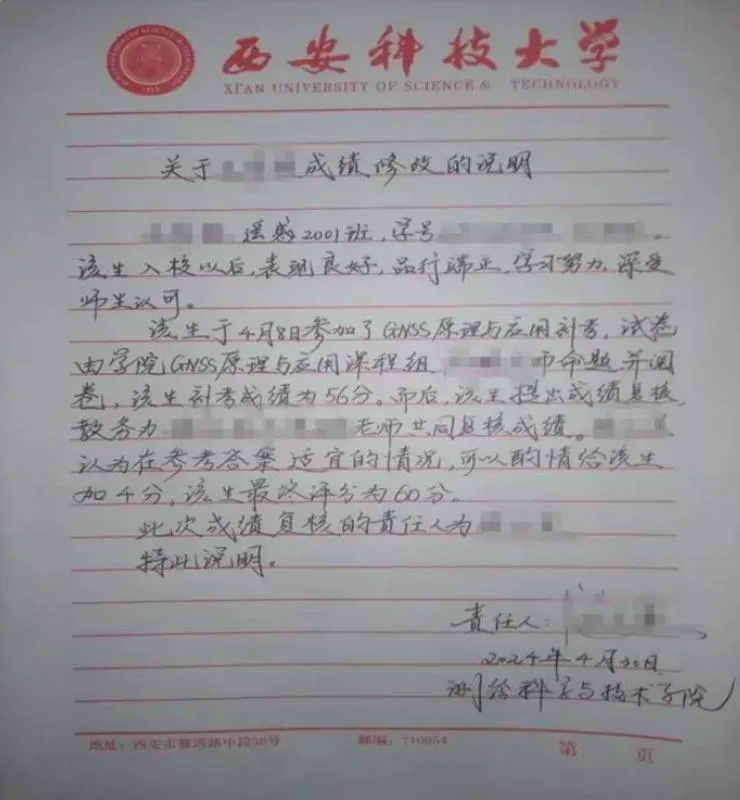 西安科技大学
XI'AN UNIVERSITY OF SCIENCE & TECHNOLOGY
关于 成绩修改的说明
遥感2001班,学号 .
该生入校以后,表现良好,品行端正,学习努力,深受
师生认可。
该生于4月8日参加了GNSS原理与应用补考,试卷
由学院GNSS原理与应用课程组, 师命题并阅
卷,该生补考成绩为56分。而后,该生提出成绩复核,
教务为 老师共同复核成绩。
认为在参考答案适宜的情况,可以酌情给该生
加4分,该生最终评分为60分。
此次成绩复核的责任人为
特此说明。
责任人:
2024年4月30日
测绘科学与技术学院
地址:西安市雁塔路中段58号 邮编:710054 第 页